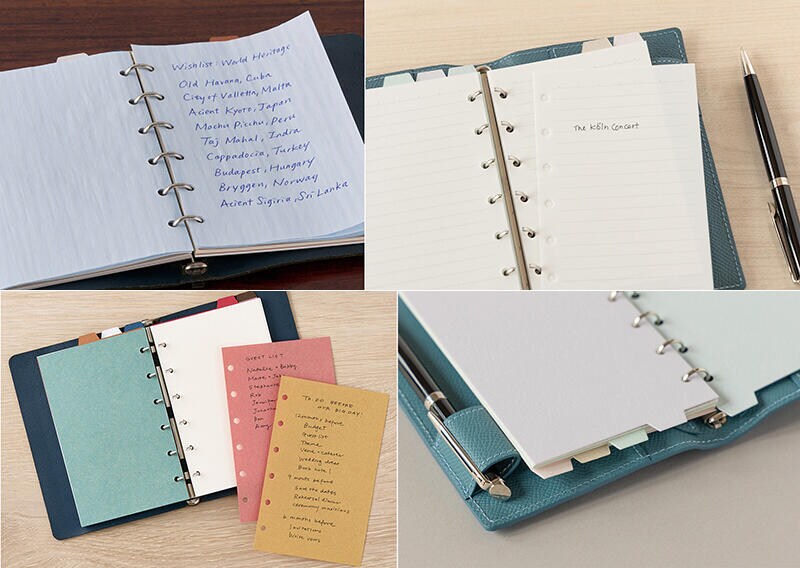 Wishlist: World Heritage
Old Havana, Cuba
City of Valletta, Malta
Acient Kyoto, Japan
Machu Picchu, Peru
Taj Mahal, India
Cappadocia, Turkey
Budapest, Hungary
Bryggen, Norway
Acient Sigiria, Sri Lanka
The Köln Concert
GUEST LIST
Natalie + Bobby
Rob
Amy
TO DO BEFORE
OUR BIG DAY!
12 months before
Budget
Guest list
Theme
Venue + caterer
Wedding dress
Book hotel!
9 months before
Save the dates
Rehearsal dinner
ceremony musicians
6 months before
Invitations
Write vows